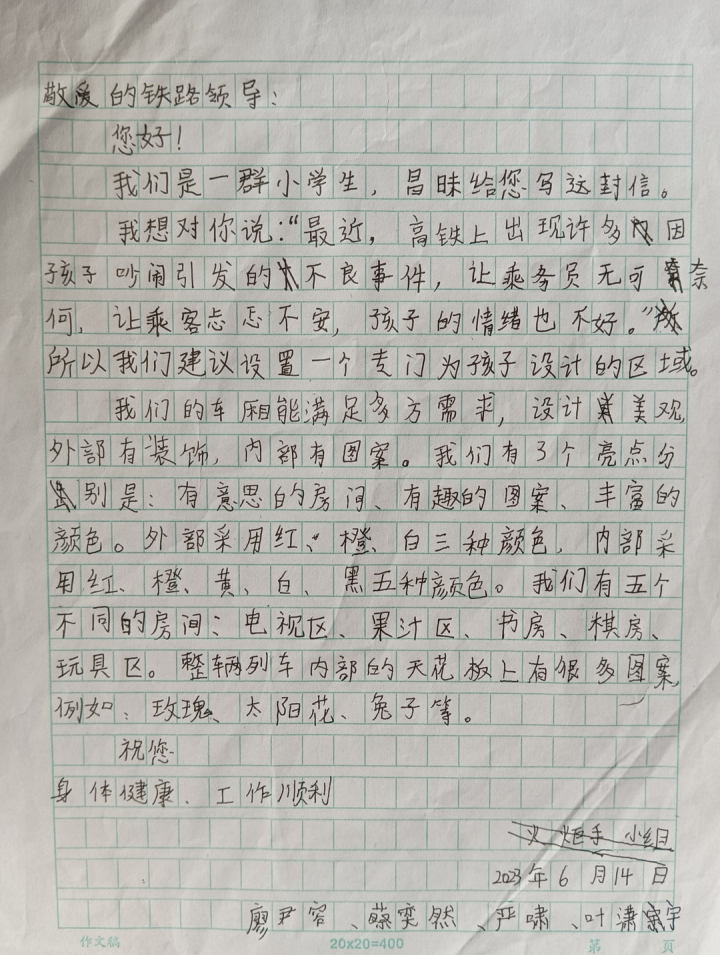 敬爱的铁路领导：
您好！
我们是一群小学生，冒昧给您写这封信。
我想对你说：“最近，高铁上出现许多因
孩子吵闹引发的不良事件，让乘务员无可奈
何，让乘客忐忑不安，孩子的情绪也不好。”
所以我们建议设置一个专门为孩子设计的区域。
我们的车厢能满足多方需求，设计美观
外部有装饰，内部有图案。我们有3个亮点分
别是：有意思的房间、有趣的图案、丰富的
颜色。外部采用红、橙、白三种颜色，内部采
用红、橙、黄、白、黑五种颜色。我们有五个
不同的房间：电视区、果汁区、书房、棋房、
玩具区。整辆列车内部的天花板上有很多图案，
例如：玫瑰、太阳花、兔子等。
祝您
身体健康、工作顺利
火炬手小组
2023年6月14日
廖尹容、蔡奕然、严啸、叶潇宇
作文稿 20x20=400 第 页